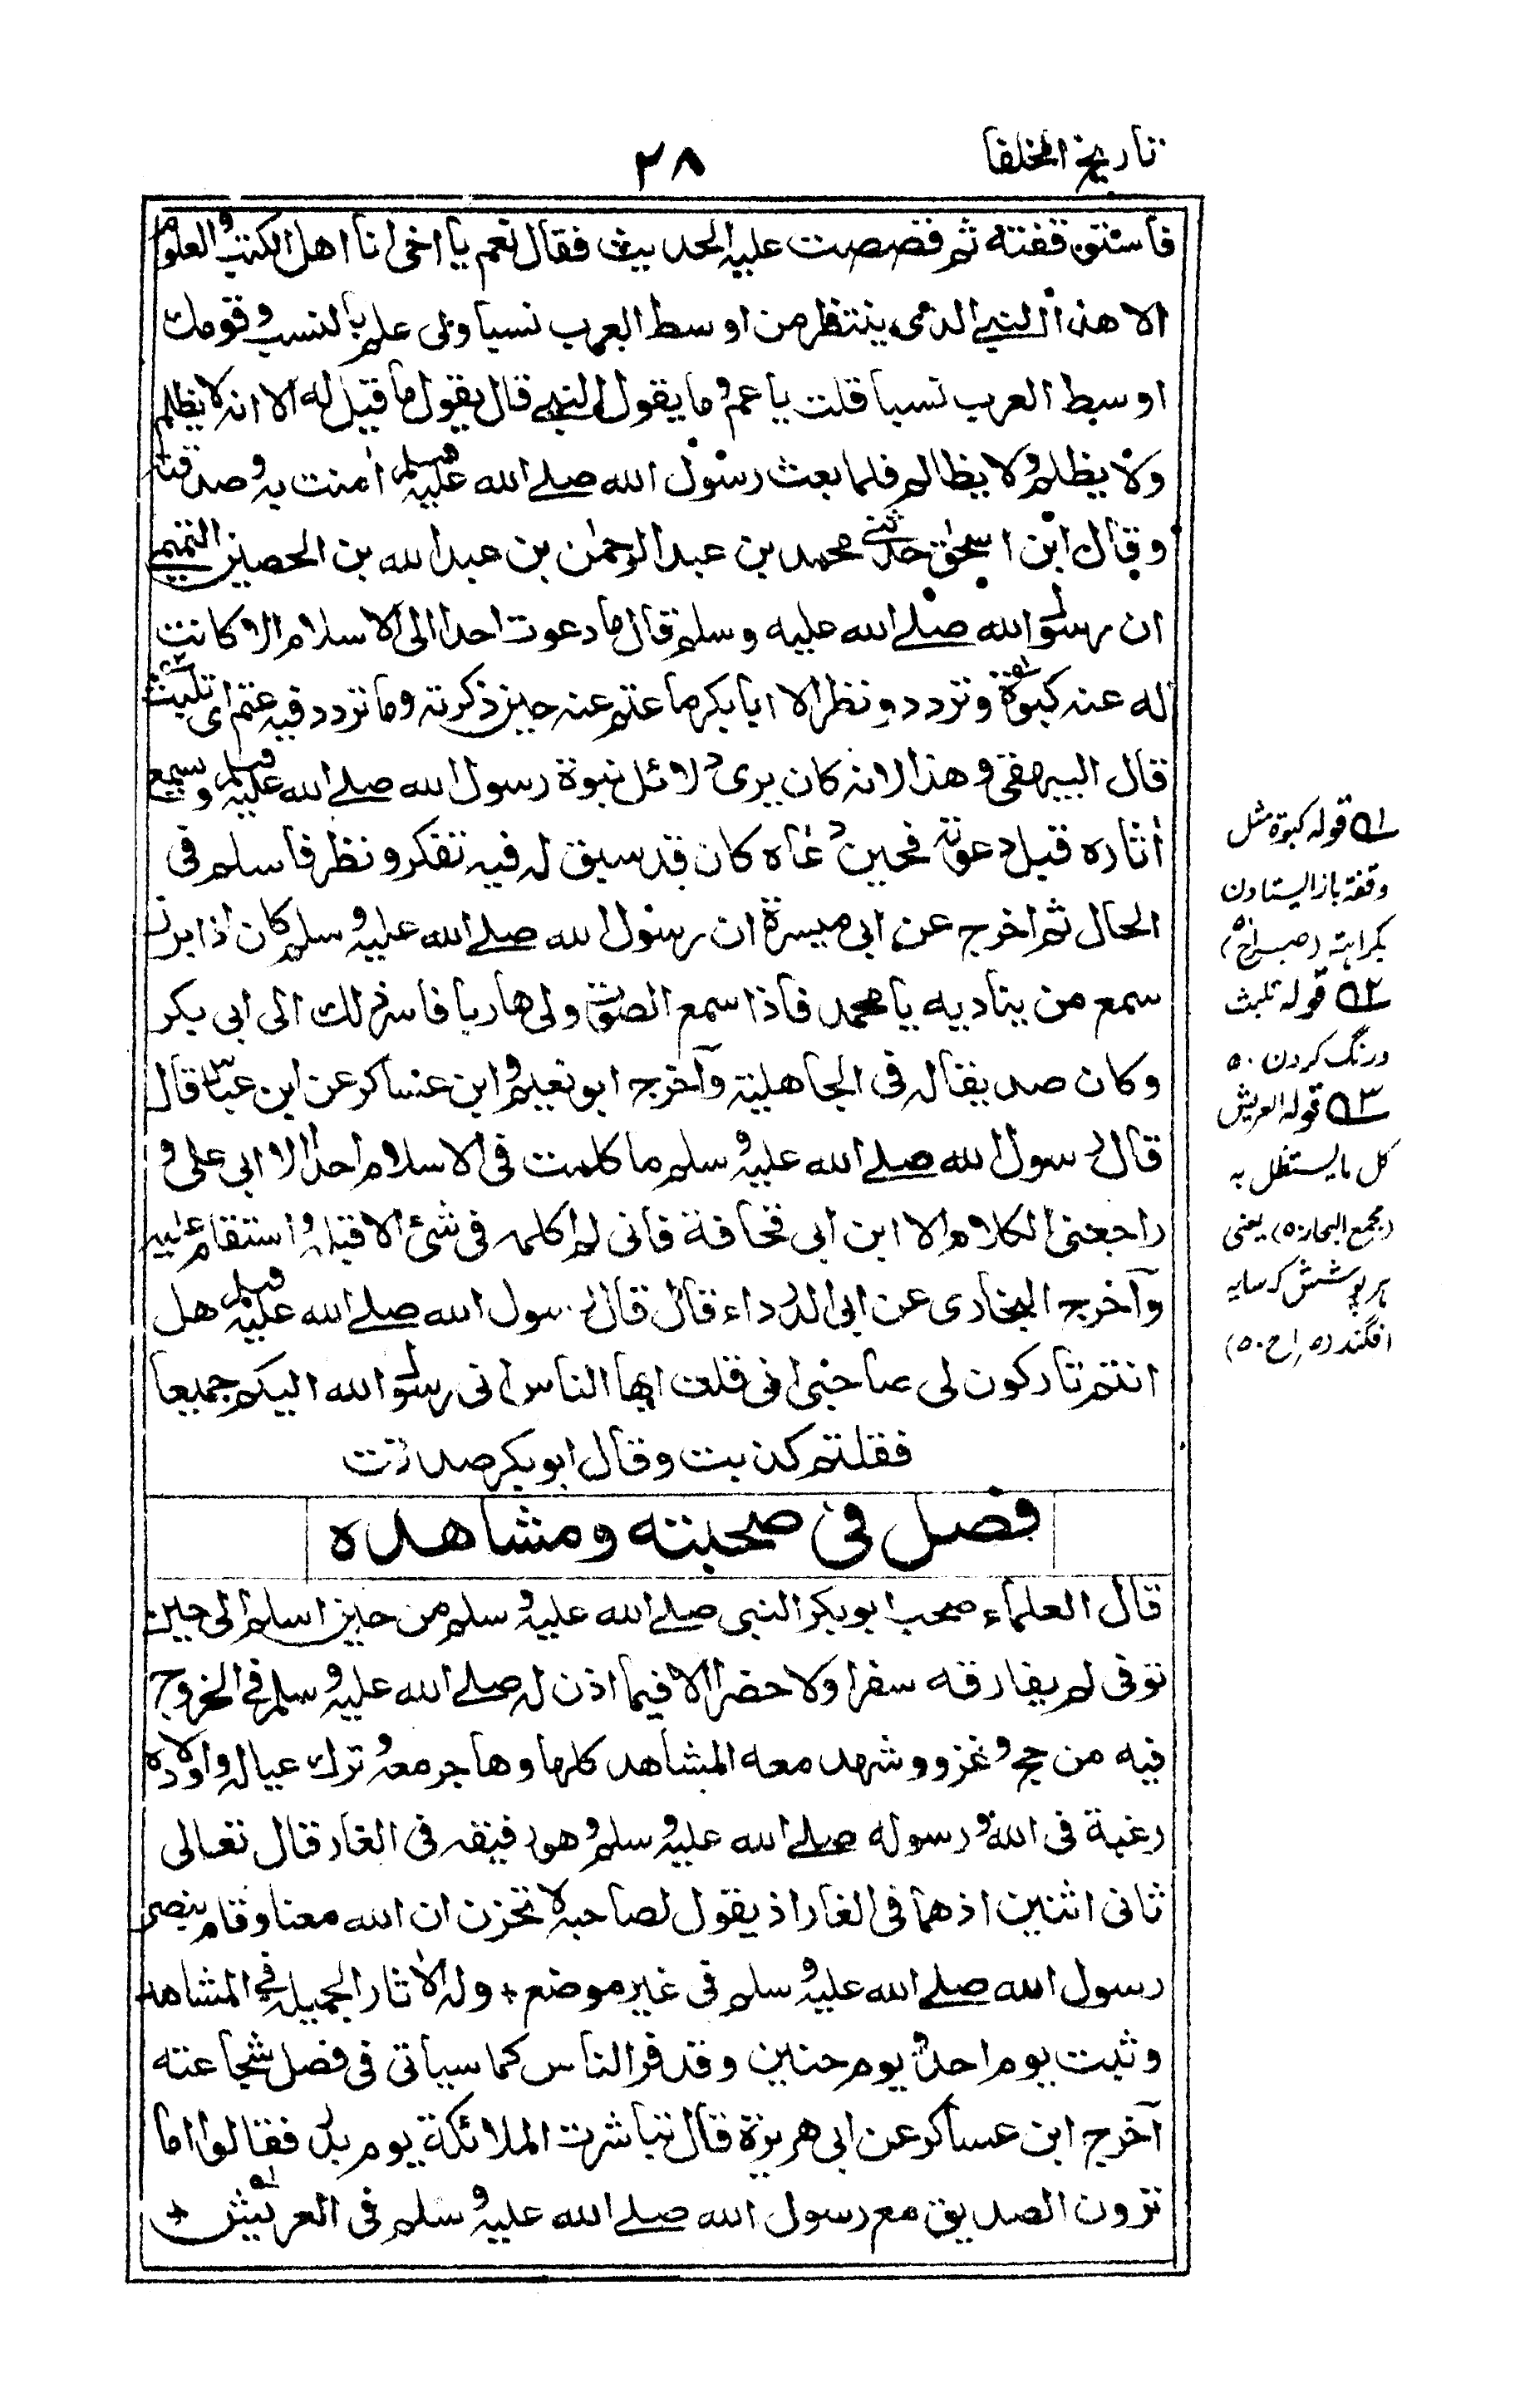 تاریخ الخلفا
۲۸
فاستوقفته ثم قصصت علیہ الحدیث فقال نعم یا اخی انا اهل الکتب والعلوم
الا هذا النبی الذی ینتظر من اوسط العرب نسبا ولی علم بالنسب وقومك
اوسط العرب نسبا قلت یا عم وما یقول النبی قال یقول ما قیل له الا انہ لا یظلم
ولا یظلم ولا یظالم فلما بعث رسول الله صلے الله علیہ وسلم اٰمنت بہ وصدقتہ
وقال ابن اسحٰق حدثنی محمد بن عبد الرحمٰن بن عبد الله بن الحصین التمیمی
ان رسول الله صلے الله علیه وسلم قال ما دعوت احدا الی الاسلام الا کانت
له عنہ کبوۃ وتردد ونظر الا ابا بکر ما عتم عنہ حین ذکرتہ وما تردد فیہ عتم ای تلبث
قال البیہقی وهذا لانہ کان یری دلائل نبوۃ رسول الله صلے الله علیہ وسلم ویسمع
اٰثاره قبل دعوتہ فحین دعاه کان قد سبق لہ فیہ تفکر ونظر فاسلم فی
الحال ثم اخرج عن ابی میسرۃ ان رسول الله صلے الله علیہ وسلم کان اذا برز
سمع من ینادیه یا محمد فاذا سمع الصوت ولی هاربا فاسر ذلك الی ابی بکر
وکان صدیقالہ فی الجاهلیۃ وآخرج ابو نعیم وابن عساکر عن ابن عباس قال
قال رسول الله صلے الله علیہ وسلم ما کلمت فی الاسلام احدا الا ابی علی و
راجعنی الکلام الا ابن ابی قحافۃ فانی لم اکلمہ فی شئ الا قبلہ واستقام علیہ
وآخرج البخاری عن ابی الدرداء قال قال رسول الله صلے الله علیہ وسلم هل
انتم تارکون لی صاحبی انی قلت ایها الناس انی رسول الله الیکم جمیعا
فقلتم کذبت وقال ابو بکر صدقت
فصل فی صحبته ومشاهده
قال العلماء صحب ابو بکر النبی صلے الله علیہ وسلم من حین اسلم الی حین
توفی لم یفارقه سفرا ولا حضرا الا فیما اذن لہ صلے الله علیہ وسلم فی الخروج
فیه من حج وغزو وشهد معه المشاهد کلها وهاجر معہ وترك عیالہ واولاده
رغبۃ فی الله ورسوله صلے الله علیہ وسلم وهو رفیقہ فی الغار قال تعالی
ثانی اثنین اذ هما فی الغار اذ یقول لصاحبہ لا تحزن ان الله معنا وقام بنصر
رسول الله صلے الله علیہ وسلم فی غیر موضع + ولہ الاٰثار الجمیلۃ فی المشاهد
وثبت یوم احد ویوم حنین وقد فر الناس کما سیاتی فی فصل شجاعته
آخرج ابن عساکر عن ابی هریرۃ قال تباشرت الملائکۃ یوم بدر فقالوا اما
ترون الصدیق مع رسول الله صلے الله علیہ وسلم فی العریش +
۱ قولہ کبوۃ مثل
وقفۃ باز ایستادن
بکراہۃ (صراح)
۲ قولہ تلبث
درنگ کردن ۰
۳ قولہ العریش
کل ما یستظل بہ
(مجمع البحار) یعنی
ہر پوشش کہ سایہ
افگند